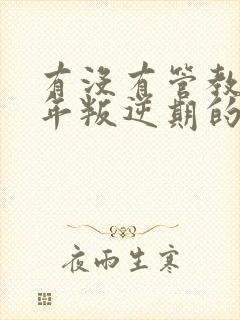 有沒有管教
年叛逆期的
夜雨生寒